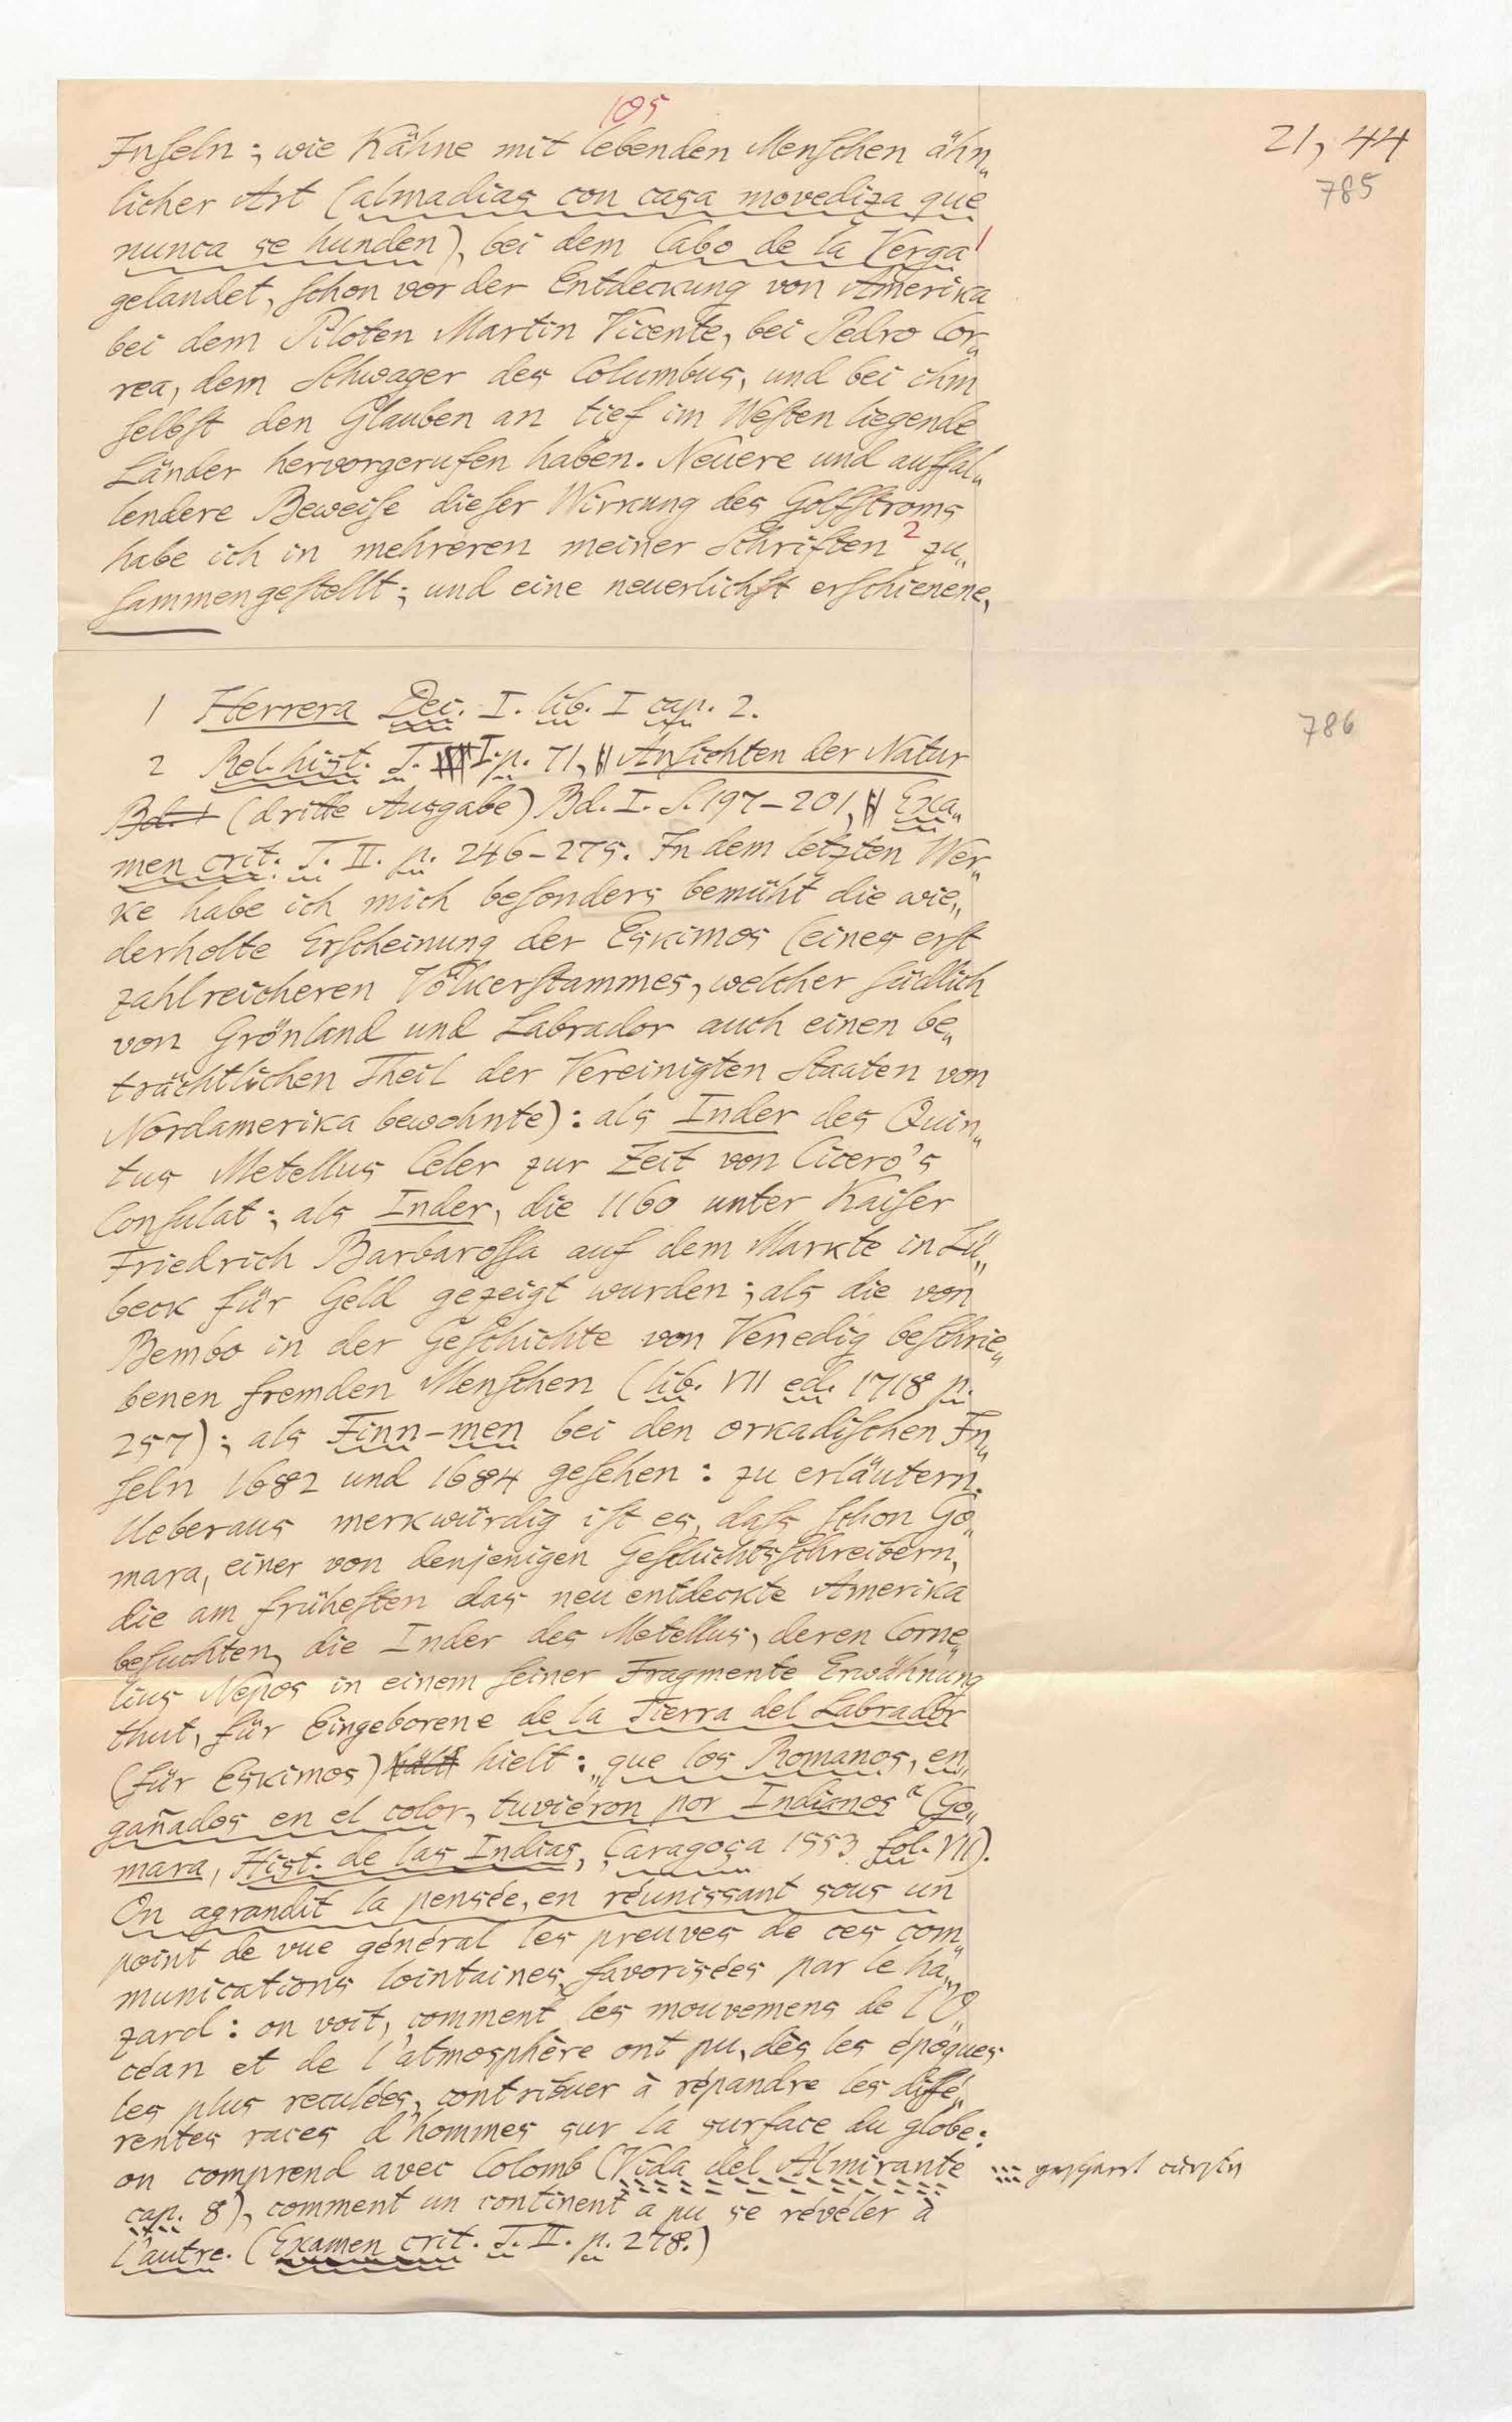 105
21, 44
785
Inſeln; wie Kähne mit lebenden Menſchen ähn„
licher Art (almadias con casa movediza que
nunca se hunden), bei dem Cabo de la Verga 1
gelandet, ſchon vor der Entdeckung von Amerika
bei dem Piloten Martin Vicente, bei Pedro Cor„
rea, dem Schwager des Columbus, und bei ihm
ſelbſt den Glauben an tief im Weſten liegende
Länder hervorgerufen haben. Neuere und auffal„
lendere Beweiſe dieſer Wirkung des Golfſtroms
habe ich in mehreren meiner Schriften 2 zu„
ſammengeſtellt; und eine neuerlichſt erſchienene,
1 Herrera Dec. I. lib. I cap. 2.
786
2 Rel. hist. T. I. p. 71, Anſichten der Natur
Bd. I (dritte Ausgabe) Bd. I. S. 197–201, Exa„
men crit. T. II. p. 246–275. In dem letzten Wer„
ke habe ich mich beſonders bemüht die wie„
derholte Erſcheinung der Eskimos (eines erſt
zahlreicheren Völkerſtammes, welcher ſüdlich
von Grönland und Labrador auch einen be„
trächtlichen Theil der Vereinigten Staaten von
Nordamerika bewohnte): als Inder des Quin„
tus Metellus Celer zur Zeit von Cicero's
Conſulat; als Inder, die 1160 unter Kaiſer
Friedrich Barbaroſſa auf dem Markte in Lü„
beck für Geld gezeigt wurden; als die von
Bembo in der Geſchichte von Venedig beſchrie„
benen fremden Menſchen (lib. VII ed. 1718 p.
257); als Finn-men bei den orkadiſchen In„
ſeln 1682 und 1684 geſehen: zu erläutern.
Ueberaus merkwürdig iſt es, daſs ſchon Go„
mara, einer von denjenigen Geſchichtsſchreibern,
die am früheſten das neu entdeckte Amerika
beſuchten, die Inder des Metellus, deren Corne„
lius Nepos in einem ſeiner Fragmente Erwähnung
thut, für Eingeborene de la Tierra del Labrador
(für Eskimos) hält hielt: „que los Romanos, en„
gañados en el color, tuviéron por Indianos“ (Go„
mara, Hist. de las Indias, Çaragoça 1553 fol. VII).
On agrandit la pensée, en réunissant sous un
point de vue général les preuves de ces com„
munications lointaines, favorisées par le ha„
zard: on voit, comment les mouvemens de l'O„
céan et de l'atmosphère ont pu, dès les époques
les plus reculées, contribuer à répandre les diffé„
rentes races d'hommes sur la surface du globe:
on comprend avec Colomb (Vida del Almirante
gesperrt cursiv
cap. 8), comment un continent a pu se révéler à
l'autre. (Examen crit. T. II. p. 278.)